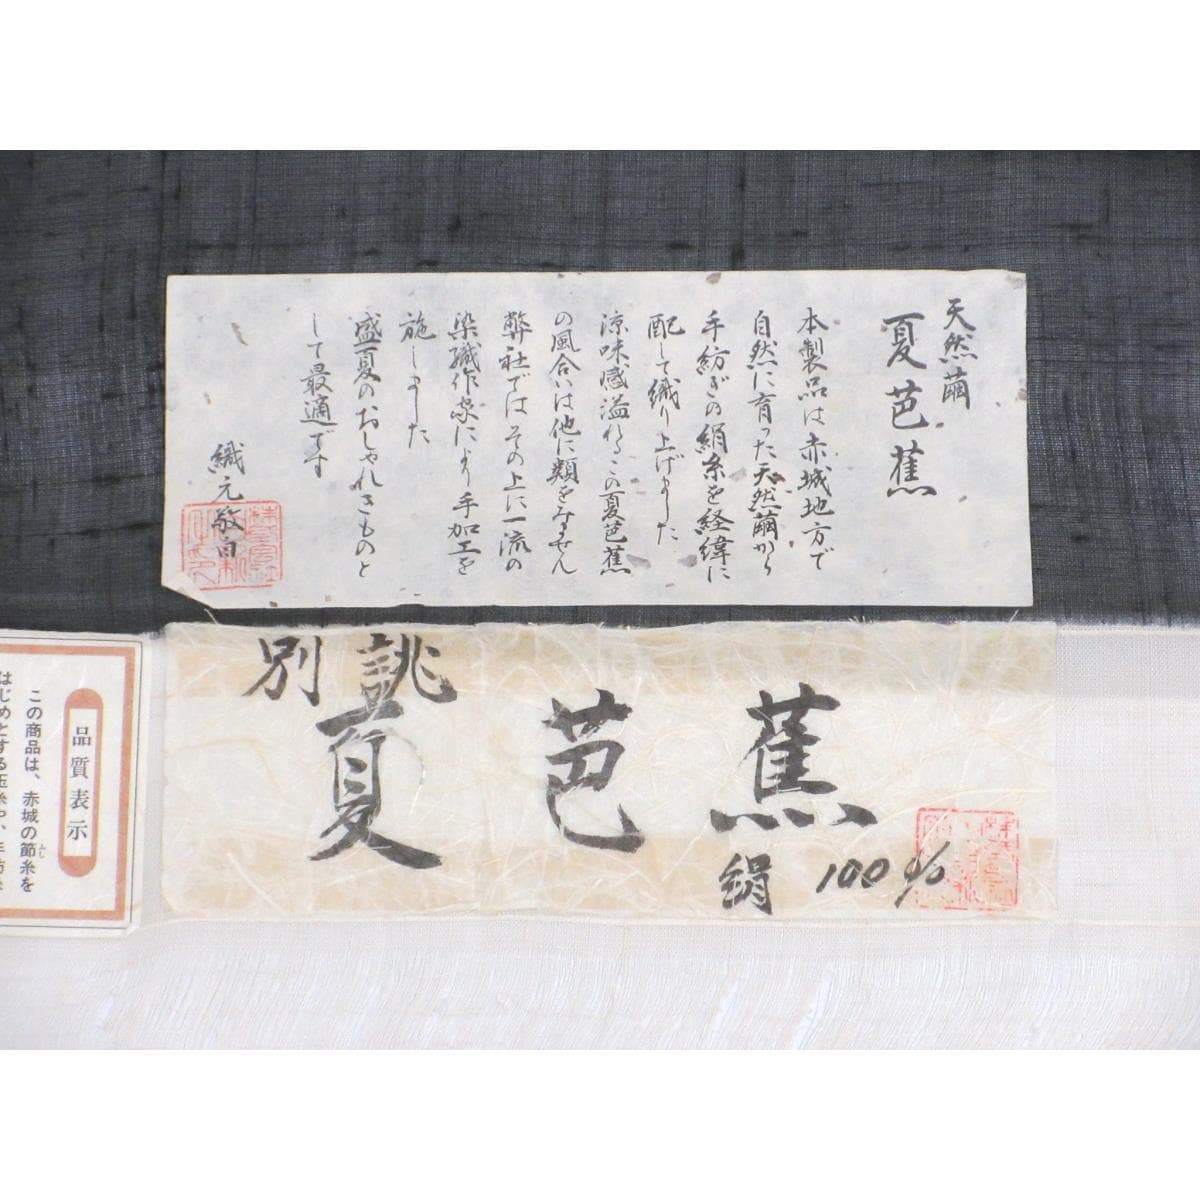 天然繭
夏芭蕉
本製品は赤城地方で
自然に育った天然繭から
手紡ぎの絹糸を経緯に
配して織り上げました
涼味感溢れるこの夏芭蕉
の風合いは他に類をみません
弊社ではその上に一流の
染織作家により手加工を
施しました
盛夏のおしゃれきものと
して最適です
織元敬白
別誂
夏芭蕉
絹100%
品質表示
この商品は、赤城の節糸を
ふし
はじめとする玉糸や、手紡糸